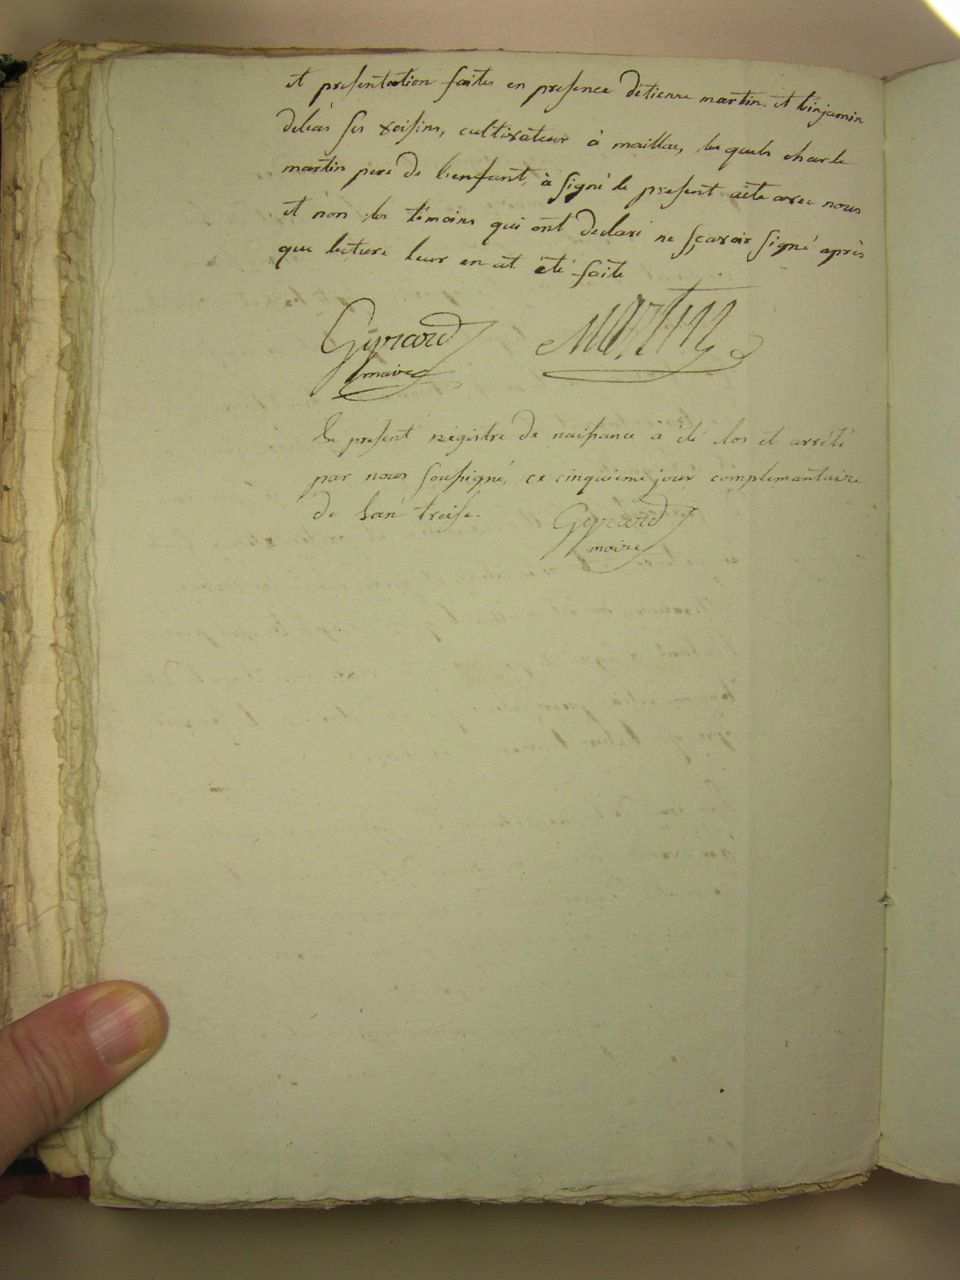 et presentation faites en presence detienne martin et binjamin
deléas ses voisins, cultivateur à maillac, les quels charle
martin pere de l'enfant, à signé le present acte avec nous
et non les témoins qui ont declaré ne sçavoir signé après
que lecture leur en at été faite
Gÿrard Martin
maire
le present régistre de naissance à été clos et arrété
par nous soussigné, ce cinquieme jour complimantaire
de l'an treise.
Gyrard
maire